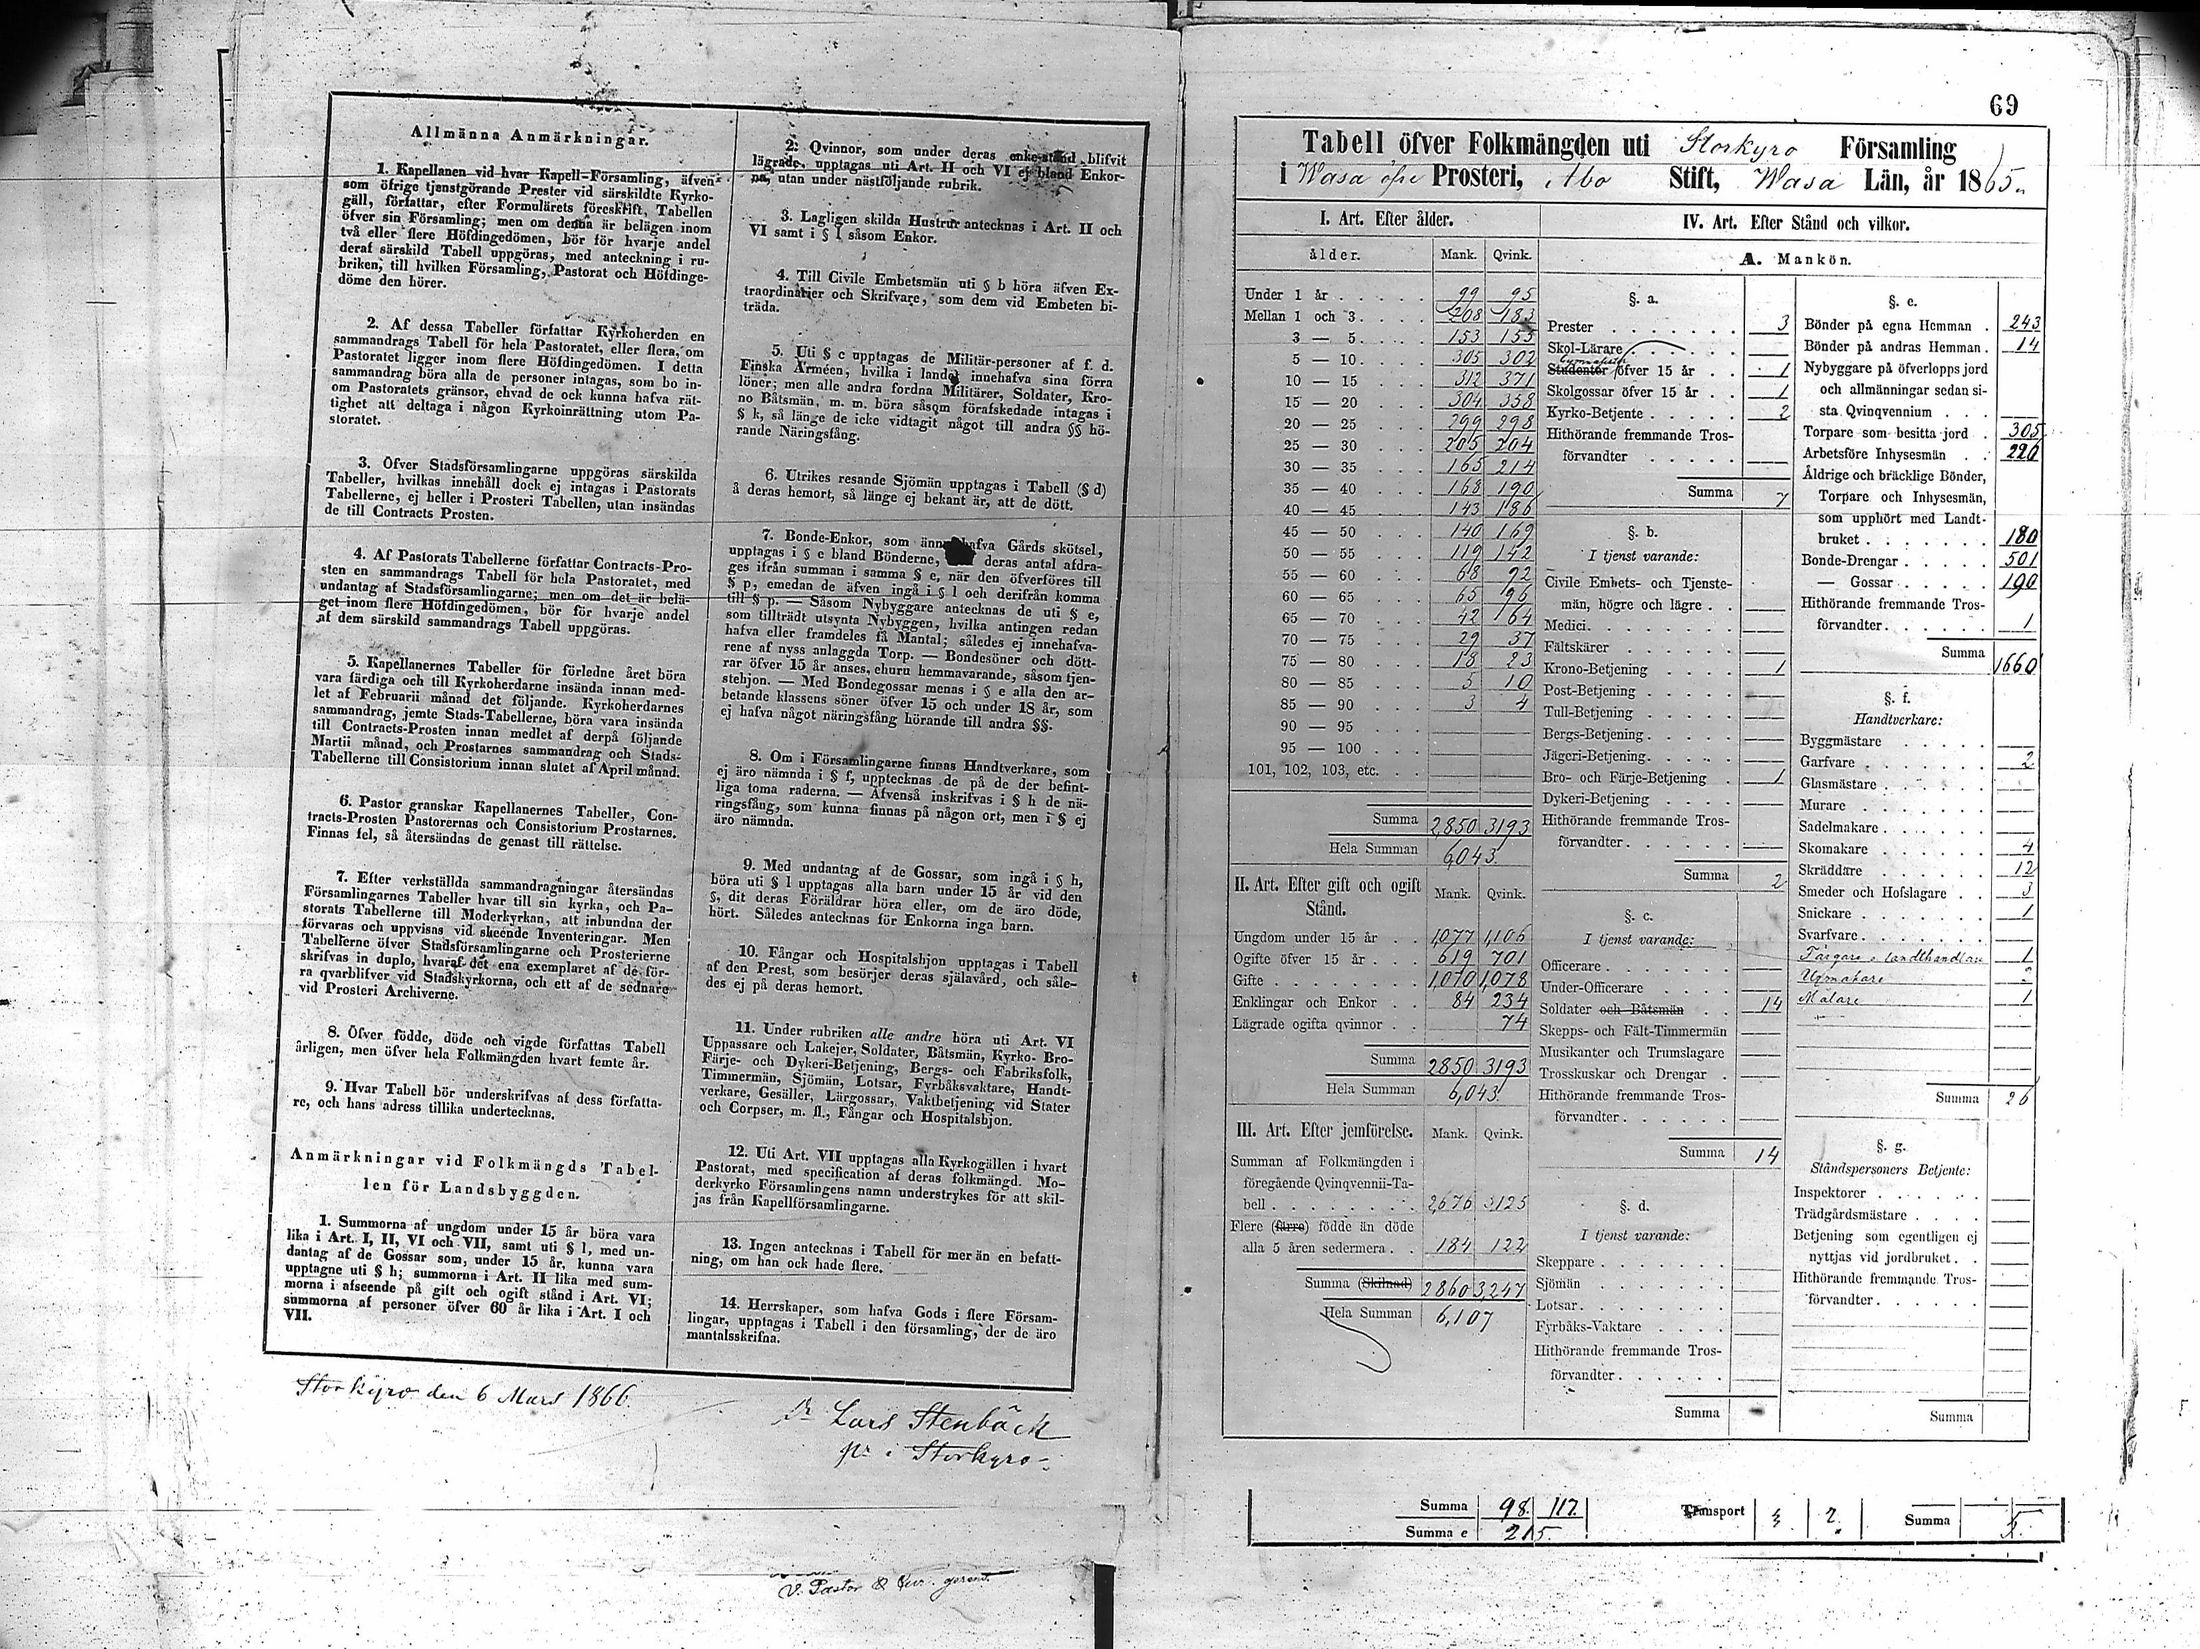 Allmänna Anmärkningar.
1. Kapellanen vid hvar Kapell-Församling, äfven-
som öfrige tjenstgörande Prester vid särskildte Kyrko-
gäll, författar, efter Formulärets föreskrift, Tabellen
öfver sin Församling; men om denna är belägen inom
två eller flere Höfdingedömen, bör för hvarje andel
deraf särskild Tabell uppgöras, med anteckning i ru-
briken, till hvilken Församling, Pastorat och Höfdinge-
döme den hörer.
2. Af dessa Tabeller författar Kyrkoherden en
sammandrags Tabell för hela Pastoratet, eller flera, om
Pastoratet ligger inom flere Höfdingedömen. I detta
sammandrag böra alla de personer intagas, som bo in-
om Pastoratets gränsor, ehvad de ock kunna hafva rät-
tighet att deltaga i någon Kyrkoinrättning utom Pa-
storatet.
3. Öfver Stadsförsamlingarne uppgöras särskilda
Tabeller, hvilkas innehåll dock ej intagas i Pastorats
Tabellerne, ej heller i Prosteri Tabellen, utan insändas
de till Contracts Prosten.
4. Af Pastorats Tabellerne författar Contracts-Pro-
sten en sammandrags Tabell för hela Pastoratet, med
undantag af Stadsförsamlingarne; men om det är belä-
get inom flere Höfdingedömen, bör för hvarje andel
af dem särskild sammandrags Tabell uppgöras.
5. Kapellanernes Tabeller för förledne året böra
vara färdiga och till Kyrkoherdarne insända innan med-
let af Februarii månad det följande. Kyrkoherdarnes
sammandrag, jemte Stads-Tabellerne, böra vara insända
till Contracts-Prosten innan medlet af derpå följande
Martii månad, och Prostarnes sammandrag och Stads-
Tabellerne till Consistorium innan slutet af April månad.
6. Pastor granskar Kapellanernes Tabeller, Con-
tracts-Prosten Pastorernas och Consistorium Prostarnes.
Finnas fel, så återsändas de genast till rättelse.
7. Efter verkställda sammandragningar återsändas
Församlingarnes Tabeller hvar till sin kyrka, och Pa-
storats Tabellerne till Moderkyrkan, att inbundna der
förvaras och uppvisas vid skeende Inventeringar. Men
Tabellerne öfver Stadsförsamlingarne och Prosterierne
skrifvas in duplo, hvaraf det ena exemplaret af de för-
ra qvarblifver vid Stadskyrkorna, och ett af de sednare
vid Prosteri Archiverne.
8. Öfver födde, döde och vigde författas Tabell
årligen, men öfver hela Folkmängden hvart femte år.
9. Hvar Tabell bör underskrifvas af dess författa-
re, och hans adress tillika undertecknas.
Anmärkningar vid Folkmängds Tabel-
len för Landsbyggden.
1. Summorna af ungdom under 15 år böra vara
lika i Art. I, II, VI och VII, samt uti § l, med un-
dantag af de Gossar som, under 15 år, kunna vara
upptagne uti § h; summorna i Art. II lika med sum-
morna i afseende på gift och ogift stånd i Art. VI;
summorna af personer öfver 60 år lika i Art. I och
VII.
2. Qvinnor, som under deras enke-stånd blifvit
lägrade, upptagas uti Art. II och VI ej bland Enkor-
na, utan under nästföljande rubrik.
3. Lagligen skilda Hustrur antecknas i Art. II och
VI samt i § l såsom Enkor.
4. Till Civile Embetsmän uti § b höra äfven Ex-
traordinarier och Skrifvare, som dem vid Embeten bi-
träda.
5. Uti § c upptagas de Militär-personer af f. d.
Finska Arméen, hvilka i landet innehafva sina förra
löner; men alle andra fordna Militärer, Soldater, Kro-
no Båtsmän, m. m. böra såsom förafskedade intagas i
§ k, så länge de icke vidtagit något till andra §§ hö-
rande Näringsfång.
6. Utrikes resande Sjömän upptagas i Tabell (§ d)
å deras hemort, så länge ej bekant är, att de dött.
7. Bonde-Enkor, som ännu hafva Gårds skötsel,
upptagas i § e bland Bönderne, deras antal afdra-
ges ifrån summan i samma § e, när den öfverföres till
§ p, emedan de äfven ingå i § l och derifrån komma
till § p. — Såsom Nybyggare antecknas de uti § e,
som tillträdt utsynta Nybyggen, hvilka antingen redan
hafva eller framdeles få Mantal; således ej innehafva-
rene af nyss anlaggda Torp. — Bondesöner och dött-
rar öfver 15 år anses, churu hemmavarande, såsom tjen-
stehjon. — Med Bondegossar menas i § e alla den ar-
betande klassens söner öfver 15 och under 18 år, som
ej hafva något näringsfång hörande till andra §§.
8. Om i Församlingarne finnas Handtverkare, som
ej äro nämnda i § f, upptecknas de på de der befint-
liga toma raderna. — Äfvenså inskrifvas i § h de nä-
ringsfång, som kunna finnas på någon ort, men i § ej
äro nämnda.
9. Med undantag af de Gossar, som ingå i § h,
böra uti § l upptagas alla barn under 15 år vid den
§, dit deras Föräldrar höra eller, om de äro döde,
hört. Således antecknas för Enkorna inga barn.
10. Fångar och Hospitalshjon upptagas i Tabell
af den Prest, som besörjer deras själavård, och såle-
des ej på deras hemort.
11. Under rubriken alle andre höra uti Art. VI
Uppassare och Lakejer, Soldater, Båtsmän, Kyrko- Bro-
Färje- och Dykeri-Betjening, Bergs- och Fabriksfolk,
Timmermän, Sjömän, Lotsar, Fyrbåksvaktare, Handt-
verkare, Gesäller, Lärgossar, Vaktbetjening vid Stater
och Corpser, m. fl., Fångar och Hospitalshjon.
12. Uti Art. VII upptagas alla Kyrkogällen i hvart
Pastorat, med specification af deras folkmängd. Mo-
derkyrko Församlingens namn understrykes för att skil-
jas från Kapellförsamlingarne.
13. Ingen antecknas i Tabell för mer än en befatt-
ning, om han ock hade flere.
14. Herrskaper, som hafva Gods i flere Försam-
lingar, upptagas i Tabell i den församling, der de äro
mantalsskrifna.
Storkyro den 6 Mars 1866.
Lars Stenbäck
pr i Storkyro
V. Pastor
69
Tabell öfver Folkmängden uti Storkyro Församling
i Wasa öfre Prosteri, Åbo Stift, Wasa Län, år 1865
I. Art. Efter ålder.
ålder. Mank. Qvink.
Under 1 år 99 95
Mellan 1 och 3 208 183
3 — 5 153 155
5 — 10 305 302
10 — 15 312 371
15 — 20 304 358
20 — 25 299 298
25 — 30 205 204
30 — 35 165 214
35 — 40 168 190
40 — 45 143 186
45 — 50 140 169
50 — 55 119 142
55 — 60 68 92
60 — 65 65 96
65 — 70 42 164
70 — 75 29 37
75 — 80 18 23
80 — 85 5 10
85 — 90 3 4
90 — 95
95 — 100
101, 102, 103, etc.
Summa 2,850 3193
Hela Summan 6,043
II. Art. Efter gift och ogift Stånd. Mank. Qvink.
Ungdom under 15 år 1,077 1,106
Ogifte öfver 15 år 619 701
Gifte 1,070 1,078
Enklingar och Enkor 84 234
Lägrade ogifta qvinnor 74
Summa 2850 3193
Hela Summan 6,043
III. Art. Efter jemförelse. Mank. Qvink.
Summan af Folkmängden i
föregående Qvinqvennii-Ta-
bell 2,676 3,125
Flere (färre) födde än döde
alla 5 åren sedermera 184 122
Summa (Skilnad) 2860 3,247
Hela Summan 6,107
IV. Art. Efter Stånd och vilkor.
A. Mankön.
§. a.
Prester 3
Skol-Lärare
Studenter öfver 15 år 1
Skolgossar öfver 15 år 1
Kyrko-Betjente 2
Hithörande fremmande Tros-
förvandter
Summa 7
§. b.
I tjenst varande:
Civile Embets- och Tjenste-
män, högre och lägre
Medici
Fältskärer
Krono-Betjening 1
Post-Betjening
Tull-Betjening
Bergs-Betjening
Jägeri-Betjening
Bro- och Färje-Betjening 1
Dykeri-Betjening
Hithörande fremmande Tros-
förvandter
Summa 2
§. c.
I tjenst varande:
Officerare
Under-Officerare
Soldater och Båtsmän 14
Skepps- och Fält-Timmermän
Musikanter och Trumslagare
Trosskuskar och Drengar
Hithörande fremmande Tros-
förvandter
Summa 14
§. d.
I tjenst varande:
Skeppare
Sjömän
Lotsar
Fyrbåks-Vaktare
Hithörande fremmande Tros-
förvandter
Summa
§. e.
Bönder på egna Hemman 243
Bönder på andras Hemman 14
Nybyggare på öfverlopps jord
och allmänningar sedan si-
sta Qvinqvennium
Torpare som besitta jord 305
Arbetsföre Inhysesmän 226
Åldrige och bräcklige Bönder,
Torpare och Inhysesmän,
som upphört med Landt-
bruket 180
Bonde-Drengar 501
— Gossar 190
Hithörande fremmande Tros-
förvandter 1
Summa 1660
§. f.
Handtverkare:
Byggmästare
Garfvare 2
Glasmästare
Murare
Sadelmakare
Skomakare 4
Skräddare 12
Smeder och Hofslagare 3
Snickare 1
Svarfvare
Färgare o landthandlan 1
Urmakare 2
Målare 1
Summa 26
§. g.
Ståndspersoners Betjente:
Inspektorer
Trädgårdsmästare
Betjening som egentligen ej
nyttjas vid jordbruket
Hithörande fremmande Tros-
förvandter
Summa
Summa 98. 117. Transport 2. Summa 5.
Summa e 215.